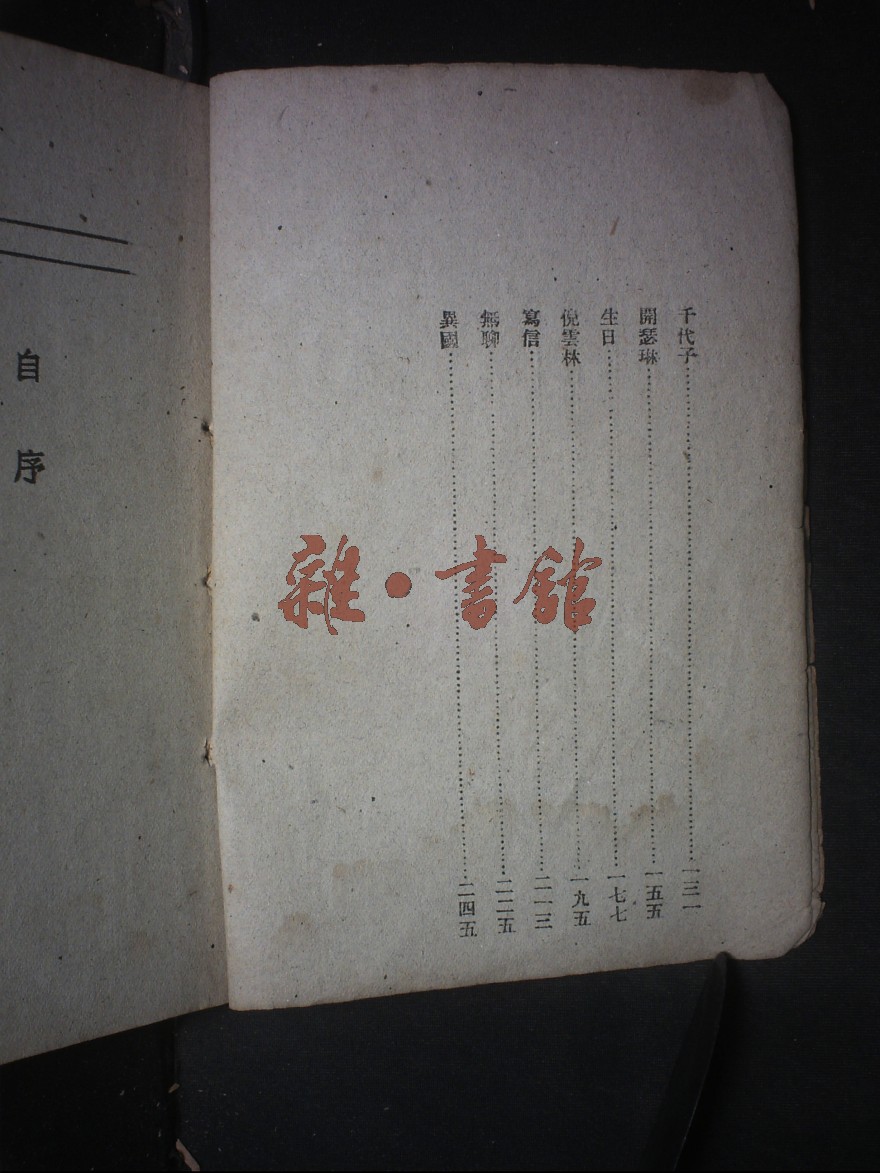 千代子……………………一三一
開瑟琳……………………一五五
生日……………………一七七
倪雲林……………………一九五
寫信……………………二一三
無聊……………………二二五
異國……………………二四五
自序
雜·書館